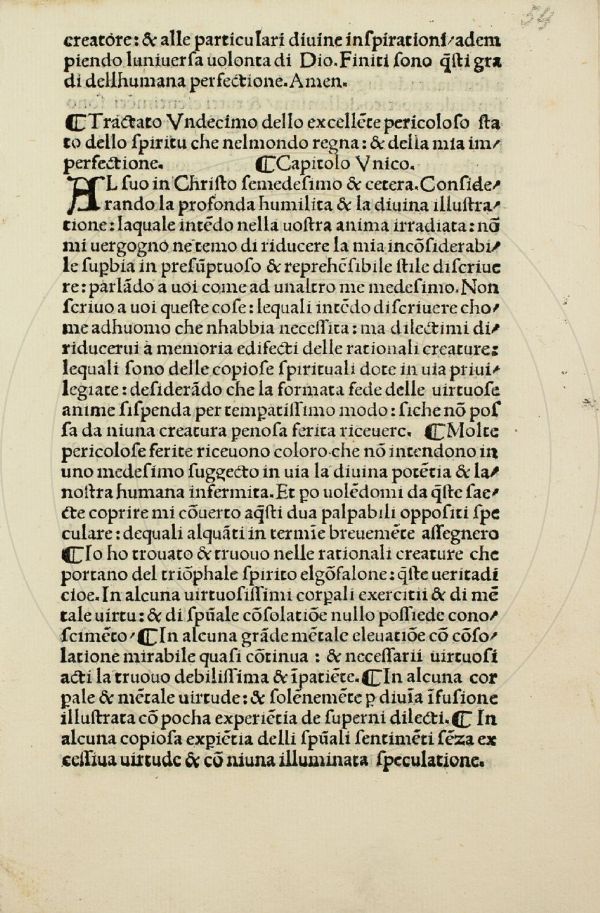 54
creatore: & alle particulari diuine inspirationi/adem
piendo luniuersa uolonta di Dio. Finiti sono q̃sti gra
di dellhumana perfectione. Amen.
¶Tractato Vndecimo dello excellẽte pericoloso sta
to dello spiritu che nelmondo regna: & della mia im/
perfectione. ¶Capitolo Vnico.
AL suo in Christo semedesimo & cetera. Conside/
rando la profonda humilita & la diuina illustra/
tione: laquale intẽdo nella uostra anima irradiata: nõ
mi uergogno ne temo di riducere la mia incõsiderabi/
le supbia in presũptuoso & reprehẽsibile stile discriue
re: parlãdo a uoi come ad unaltro me medesimo. Non
scriuo a uoi queste cose: lequali intẽdo discriuere cho/
me adhuomo che nhabbia necessita: ma dilectimi di/
riducerui à memoria edifecti delle rationali creature:
lequali sono delle copiose spirituali dote in uia priui/
legiate: desiderãdo che la formata fede delle uirtuose
anime sispenda per tempatissimo modo: siche nõ pos
sa da niuna creatura penosa ferita riceuere. ¶Molte
pericolose ferite riceuono coloro che nõ intendono in
uno medesimo suggecto in uia la diuina potẽtia & la/
nostra humana infermita. Et po uolẽdomi da q̃ste sae/
cte coprire mi cõuerto aq̃sti dua palpabili oppositi spe
culare: dequali alquãti in termĩe breuemẽte assegnero
¶Io ho trouato & truouo nelle rationali creature che
portano del triõphale spirito elgõfalone: q̃ste ueritadi
cioe. In alcuna uirtuosissimi corpali exercitii & di mẽ
tale uirtu: & di spũale cõsolatiõe nullo possiede cono/
scimẽto/ ¶In alcuna grãde mẽtale eleuatiõe cõ cõso/
latione mirabile quasi cõtinua : & necessarii uirtuosi
acti la truouo debilissima & ĩpatiẽte. ¶In alcuna cor
pale & mẽtale uirtude: & solẽnemẽte p diuĩa ĩfusione
illustrata cõ pocha experiẽtia de superni dilecti. ¶ In
alcuna copiosa expiẽtia delli spũali sentimẽti sẽza ex
cessiua uirtude & cõ niuna illuminata speculatione.